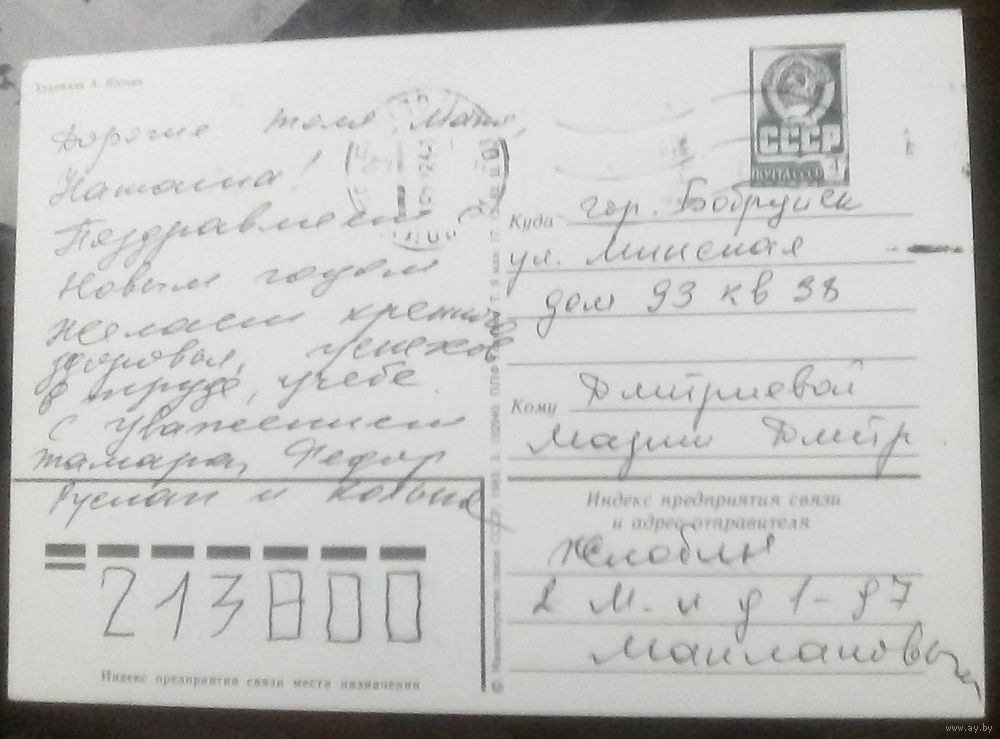 Художник А.
Дорогие Толя, Маня,
Наташа!
Поздравляем с
Новым годом
Желаем крепкого
здоровья, успехов
в труде, учебе.
С уважением
Тамара, Федор
Руслан и
СССР
ПОЧТА
4
Куда гор. Бобруйск
ул. Минская
дом 93 кв 38
Кому Дмитриевой
Марии Дмитр
Индекс предприятия связи
и адрес отправителя
Жлобин
2 М. н д 1-97
213800
Индекс предприятия связи места назначения
© Министерство связи СССР. 1983.
www.ay.by